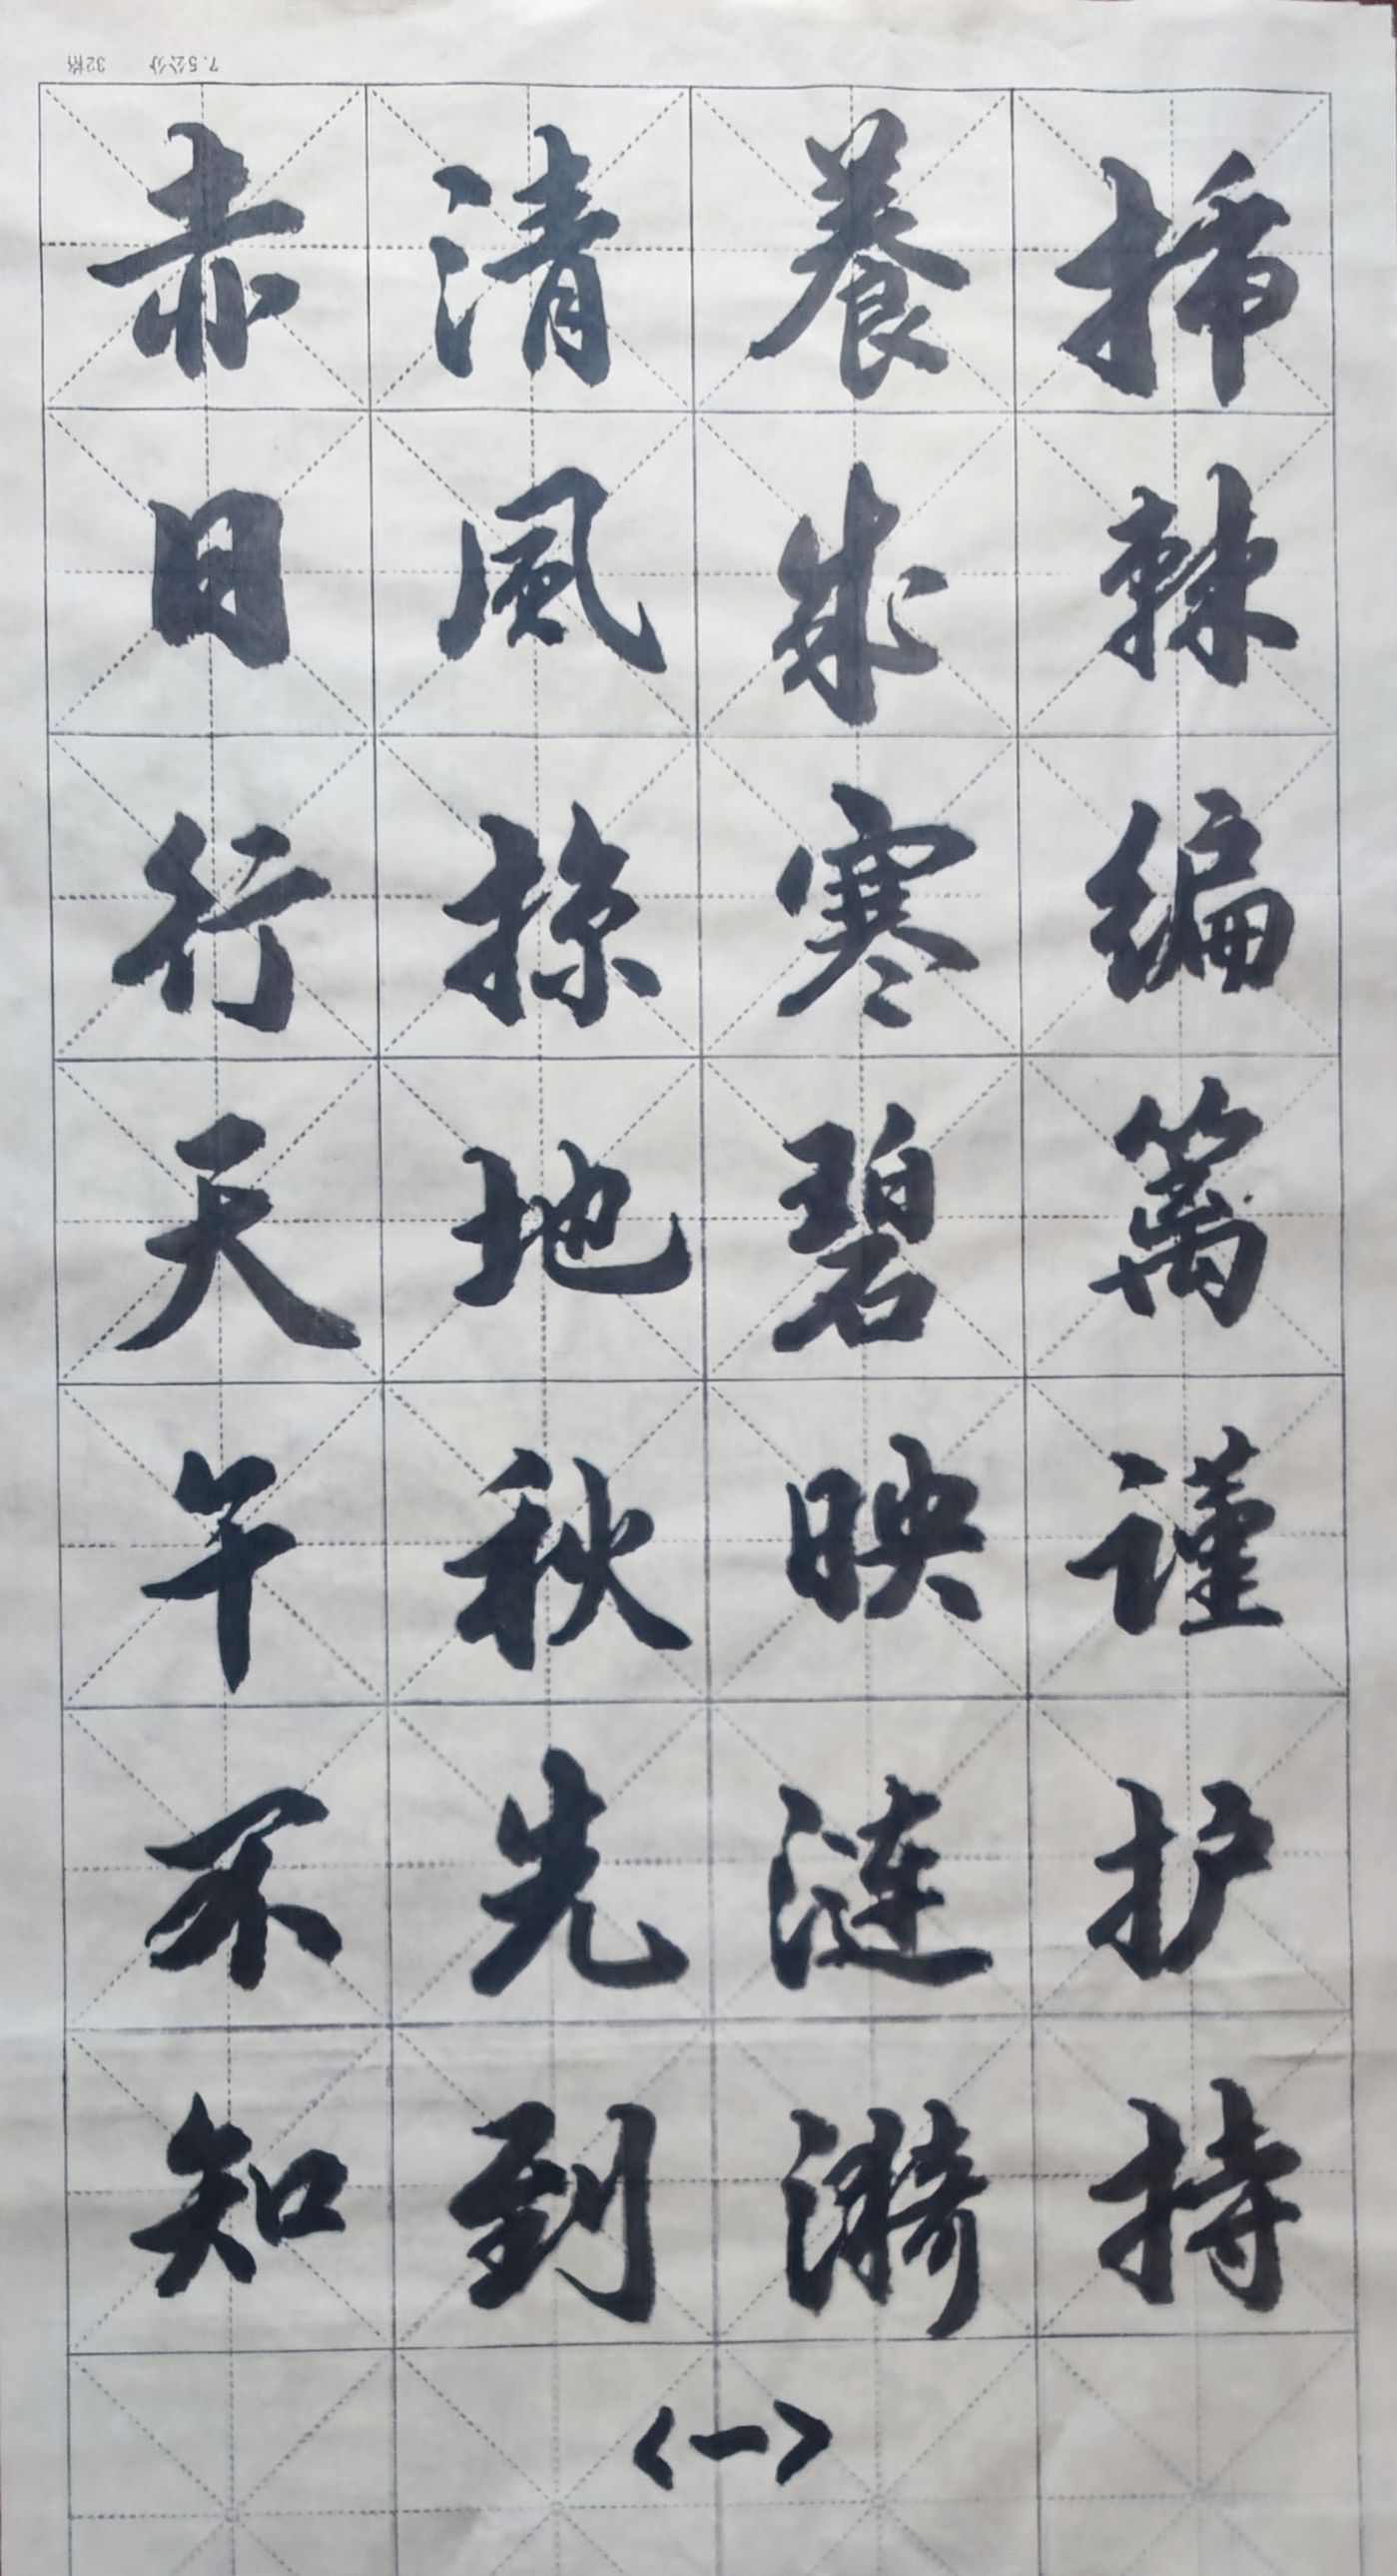 插棘编篱谨护持
養成寒碧映涟漪
清風掠地秋先到
赤日行天午不知
<一>
7.5公分 32格